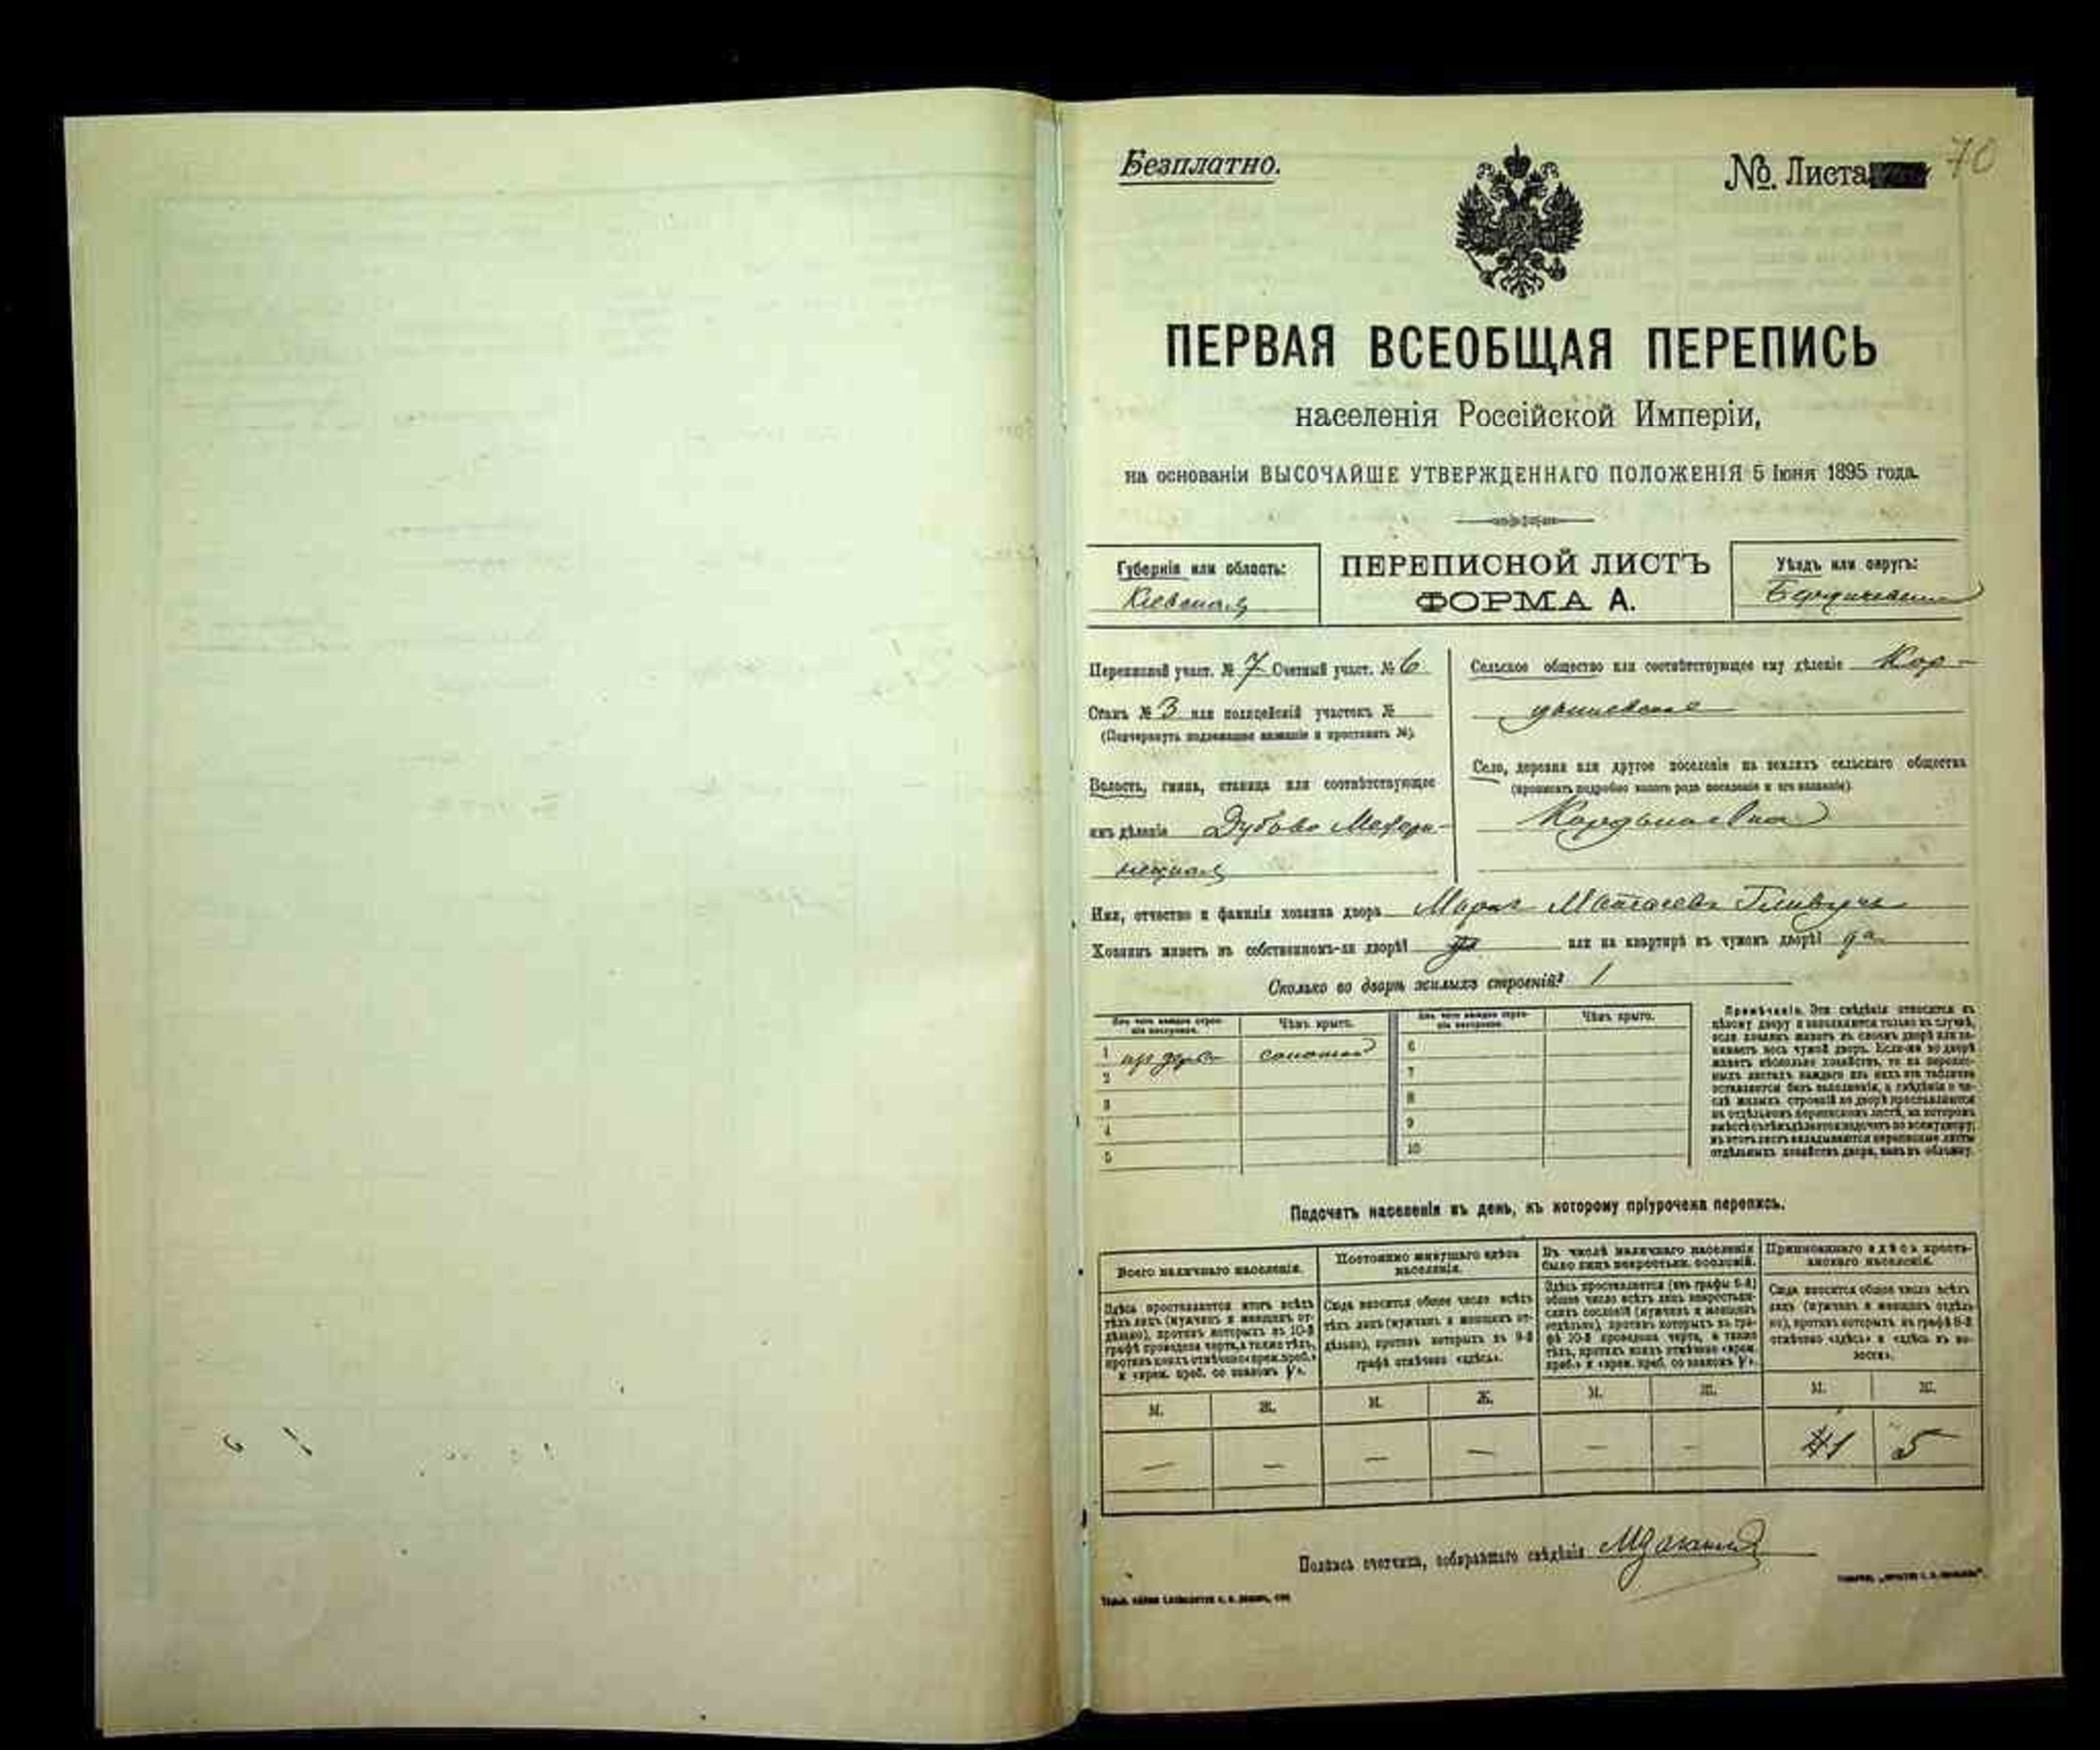 Безплатно.
№. Листа 70
ПЕРВАЯ ВСЕОБЩАЯ ПЕРЕПИСЬ
населенія Россійской Имперіи,
на основаніи ВЫСОЧАЙШЕ УТВЕРЖДЕННАГО ПОЛОЖЕНІЯ 5 Іюня 1895 года.
Губернія или область:
Кіевская
ПЕРЕПИСНОЙ ЛИСТЪ
ФОРМА А.
Уѣздъ или округъ:
Бердичевскій
Переписной участ. № 7 Счетный участ. № 6
Станъ № 3 или полицейскій участокъ №
(Подчеркнуть подлежащее названіе и проставить №).
Волость, гмина, станица или соотвѣтствующее
имъ дѣленіе Дубово Махари-
нецкая
Сельское общество или соотвѣтствующее ему дѣленіе Кор-
дышевское
Село, деревня или другое поселеніе на земляхъ сельскаго общества
(прописать подробно какого рода поселеніе и его названіе)
Кордышевка
Имя, отчество и фамилія хозяина двора
Хозяинъ живетъ въ собственномъ-ли дворѣ? или на квартирѣ въ чужомъ дворѣ? да
Сколько во дворѣ жилыхъ строеній? 1
Изъ чего каждое строе-
ніе построено.
Чѣмъ крыто.
Изъ чего каждое строе-
ніе построено.
Чѣмъ крыто.
1 соломой
2
3
4
5
6
7
8
9
10
Примѣчаніе. Эти свѣдѣнія относятся къ
цѣлому двору и заполняются только въ случаѣ,
если хозяинъ живетъ въ своемъ дворѣ или за-
нимаетъ весь чужой дворъ. Если-же во дворѣ
живетъ нѣсколько хозяйствъ, то на перепис-
ныхъ листахъ каждаго изъ нихъ эта табличка
оставляется безъ заполненія, а свѣдѣнія о чи-
слѣ жилыхъ строеній во дворѣ проставляются
на отдѣльномъ переписномъ листѣ, на которомъ
вмѣстѣ съ тѣмъ дѣлается подсчетъ по всему двору;
въ этотъ листъ вкладываются переписные листы
отдѣльныхъ хозяйствъ двора, какъ въ обложку.
Подсчетъ населенія въ день, къ которому пріурочена перепись.
Всего наличнаго населенія.
Здѣсь проставляется итогъ всѣхъ
тѣхъ лицъ (мужчинъ и женщинъ от-
дѣльно), противъ которыхъ въ 10-й
графѣ проведена черта, а также тѣхъ,
противъ коихъ отмѣчено «врем. преб.»
и «врем. преб. со знакомъ V».
Постоянно живущаго здѣсь
населенія.
Сюда вносится общее число всѣхъ
тѣхъ лицъ (мужчинъ и женщинъ от-
дѣльно), противъ которыхъ въ 9-й
графѣ отмѣчено «здѣсь».
Въ числѣ наличнаго населенія
было лицъ некрестьян. сословій.
Здѣсь проставляется (изъ графы 5-й)
общее число всѣхъ лицъ некрестьян-
скихъ сословій (мужчинъ и женщинъ
отдѣльно), противъ которыхъ въ гра-
фѣ 10-й проведена черта, а также
тѣхъ, противъ коихъ отмѣчено «врем.
преб.» и «врем. преб. со знакомъ V».
Приписаннаго здѣсь кресть-
янскаго населенія.
Сюда вносится общее число всѣхъ
лицъ (мужчинъ и женщинъ отдѣль-
но), противъ которыхъ въ графѣ 8-й
отмѣчено «здѣсь» и «здѣсь въ во-
лости».
М. Ж. М. Ж. М. Ж. М. Ж.
— — — — — — 1 5
Подпись счетчика, собиравшаго свѣдѣнія